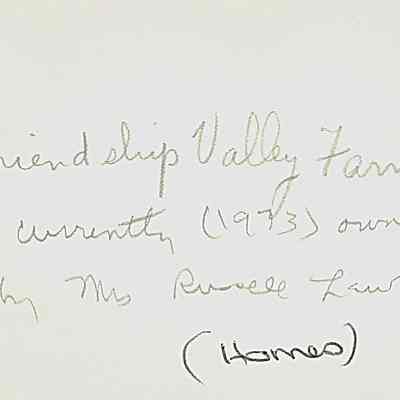 riendship Valley Farm
currently (1973) own
by Mrs Russell Law
(Homes)